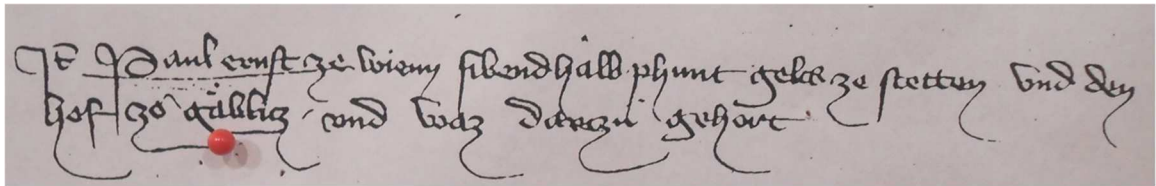 It Paul ernst ze wienn sibendhalb phunt gelcz ze stetten vnd den
hof zů Gäblicz vnd waz darczu gehört